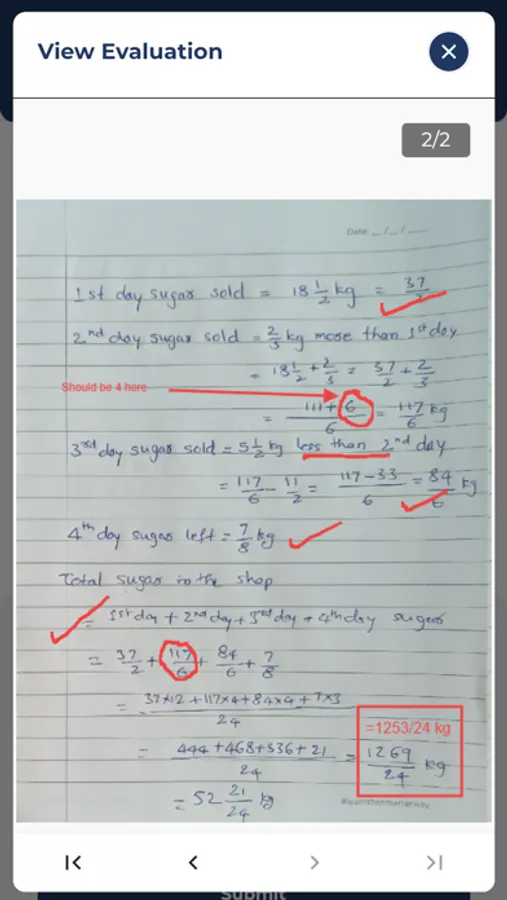 View Evaluation
2/2
Date: __/__/____
1st day sugar sold = 18 1/2 kg = 37/2
2nd day sugar sold = 2/3 kg more than 1st day
= 18 1/2 + 2/3 = 37/2 + 2/3
Should be 4 here
= 111+6/6 = 117/6 kg
3rd day sugar sold = 5 1/2 kg less than 2nd day
= 117/6 - 11/2 = 117-33/6 = 84/6 kg
4th day sugar left = 7/8 kg
Total sugar in the shop
= 1st day + 2nd day + 3rd day + 4th day sugars
= 37/2 + 117/6 + 84/6 + 7/8
= 37x12 + 117x4 + 84x4 + 7x3/24
=1253/24 kg
= 444+468+336+21/24 = 1269/24 kg
= 52 21/24 kg
#learnthesmarterway
Submit